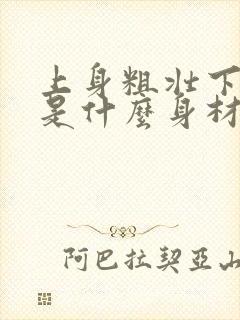 上身粗壮下
是什麼身材
阿巴拉契亞山